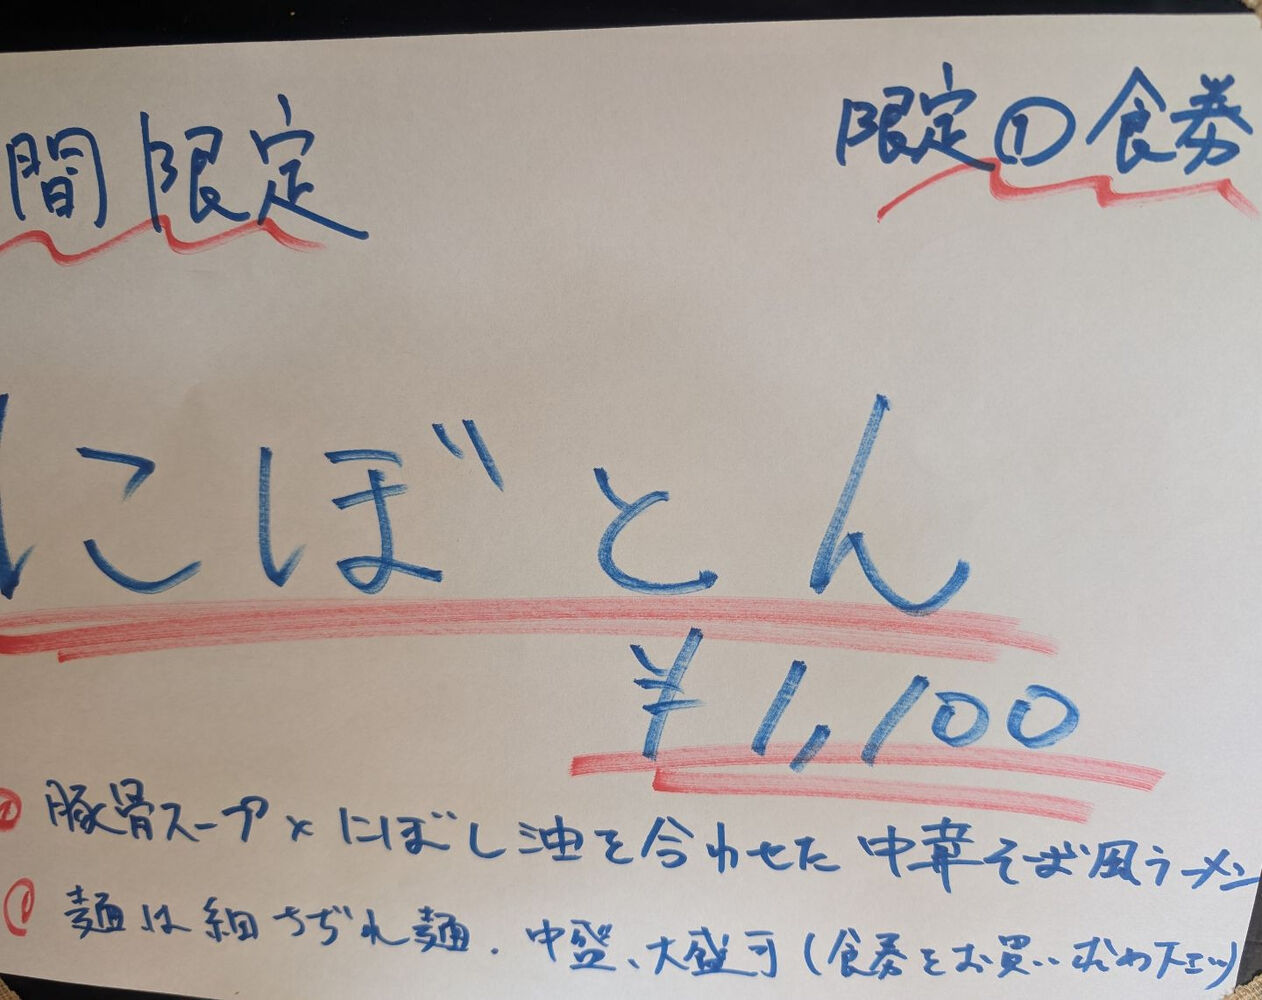 間限定
限定①食券
にぼとん
¥1,100
豚骨スープ×にぼし油を合わせた中華そば風ラーメン
麺は細ちぢれ麺.中盛、大盛可(食券をお買い求め下さい)